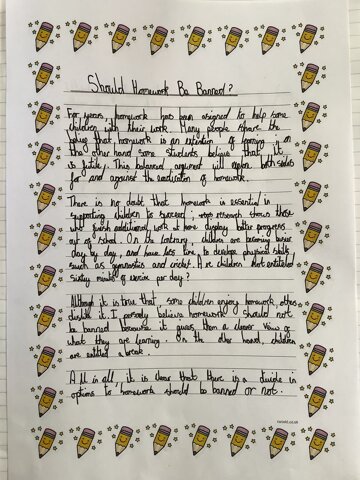 Should Homework Be Banned?
For years, homework has been assigned to help some
children with their work. Many people share the
belief that homework is an extention of learning; on
the other hand some students believe that it
is futile. This balanced argument will explore both sides
for and against the of homework.
There is no doubt that homework is essential in
supporting children to succeed; research shows those
who finish additional work at home display better progress
out of school. On the contrary, children are becoming busier
day by day, and have less time to develop physical skills,
such as gymnastics and cricket. Are children not entitled
sixty minutes of exercise per day?
Although it is true that some children enjoy homework, others
dislike it. I personally believe homework should not
be banned because it gives them a clearer view of
what they are learning. On the other hand, children
are entitled a break.
All in all, it is clear that there is a divide in
options to homework should be banned or not.
twinkl.co.uk